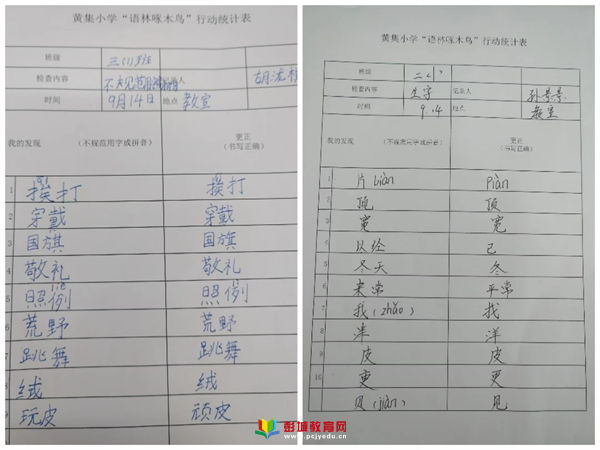 黄集小学“语林啄木鸟”行动统计表
班级 三(1)班
检查内容 不规范用字 记录人
时间 9月14日 地点 教室
我的发现 (不规范用字或拼音) 更正(书写正确)
1 挨打 挨打
2 穿戴 穿戴
3 国旗 国旗
4 敬礼 敬礼
5 照例 照例
6 荒野 荒野
7 跳舞 跳舞
8 绒 绒
9 玩皮 顽皮
黄集小学“语林啄木鸟”行动统计表
班级 二(1)
检查内容 生字 记录人 孙景景
时间 9.4 地点 教室
我的发现 (不规范用字或拼音) 更正(书写正确)
1 片 biàn piàn
2 顶 顶
3 宽 宽
4 以经 已
5 冬天 冬
6 来常 平常
7 我(zhǎo) 找
8 洋 洋
9 皮 皮
10 更 更
贝(jiàn) 见
彭城教育网
www.pcjyedu.cn